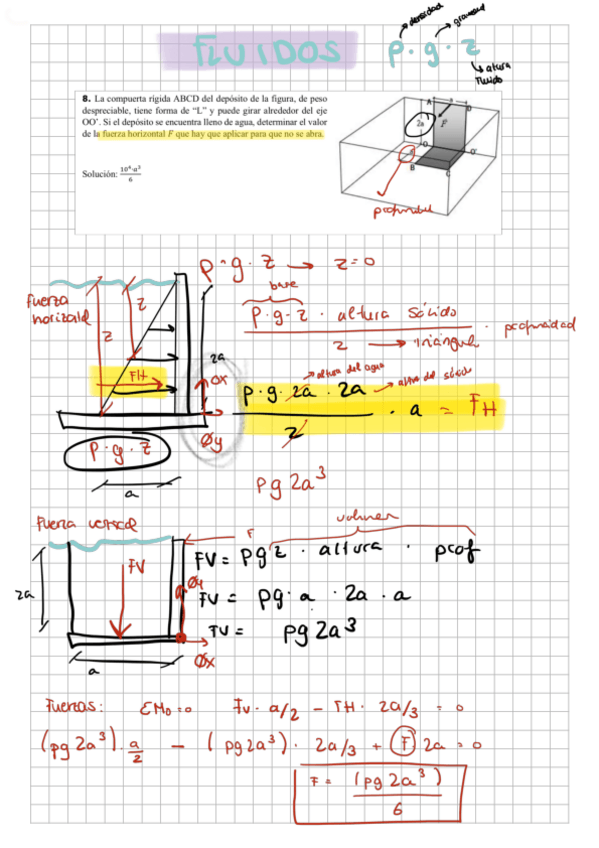 densidad
gravedad
FLUIDOS
ρ · g · z
altura
fluido
8. La compuerta rígida ABCD del depósito de la figura, de peso
despreciable, tiene forma de "L" y puede girar alrededor del eje
OO'. Si el depósito se encuentra lleno de agua, determinar el valor
de la fuerza horizontal F que hay que aplicar para que no se abra.
Solución: 10⁴·a³/6
A
D
2a
F
O
O'
a
B
C
profundidad
ρ · g · z → z=0
Fuerza
horizontal
z
z
2a
FH
ρ · g · z
a
Øx
Øy
base
ρ · g · z · altura sólido / 2 → triángulo · profundidad
altura del agua
altura del sólido
ρ · g · 2a · 2a / 2 · a = FH
ρg 2a³
Fuerza vertical
2a
FV
a
Øy
Øx
F
volumen
FV = ρgz · altura · prof
FV = ρg · a · 2a · a
FV = ρg 2a³
Fuerzas: ΣM₀=0 Fv · a/2 − FH · 2a/3 = 0
(ρg 2a³) · a/2 − (ρg2a³) · 2a/3 + F 2a = 0
F = (ρg 2a³)/6